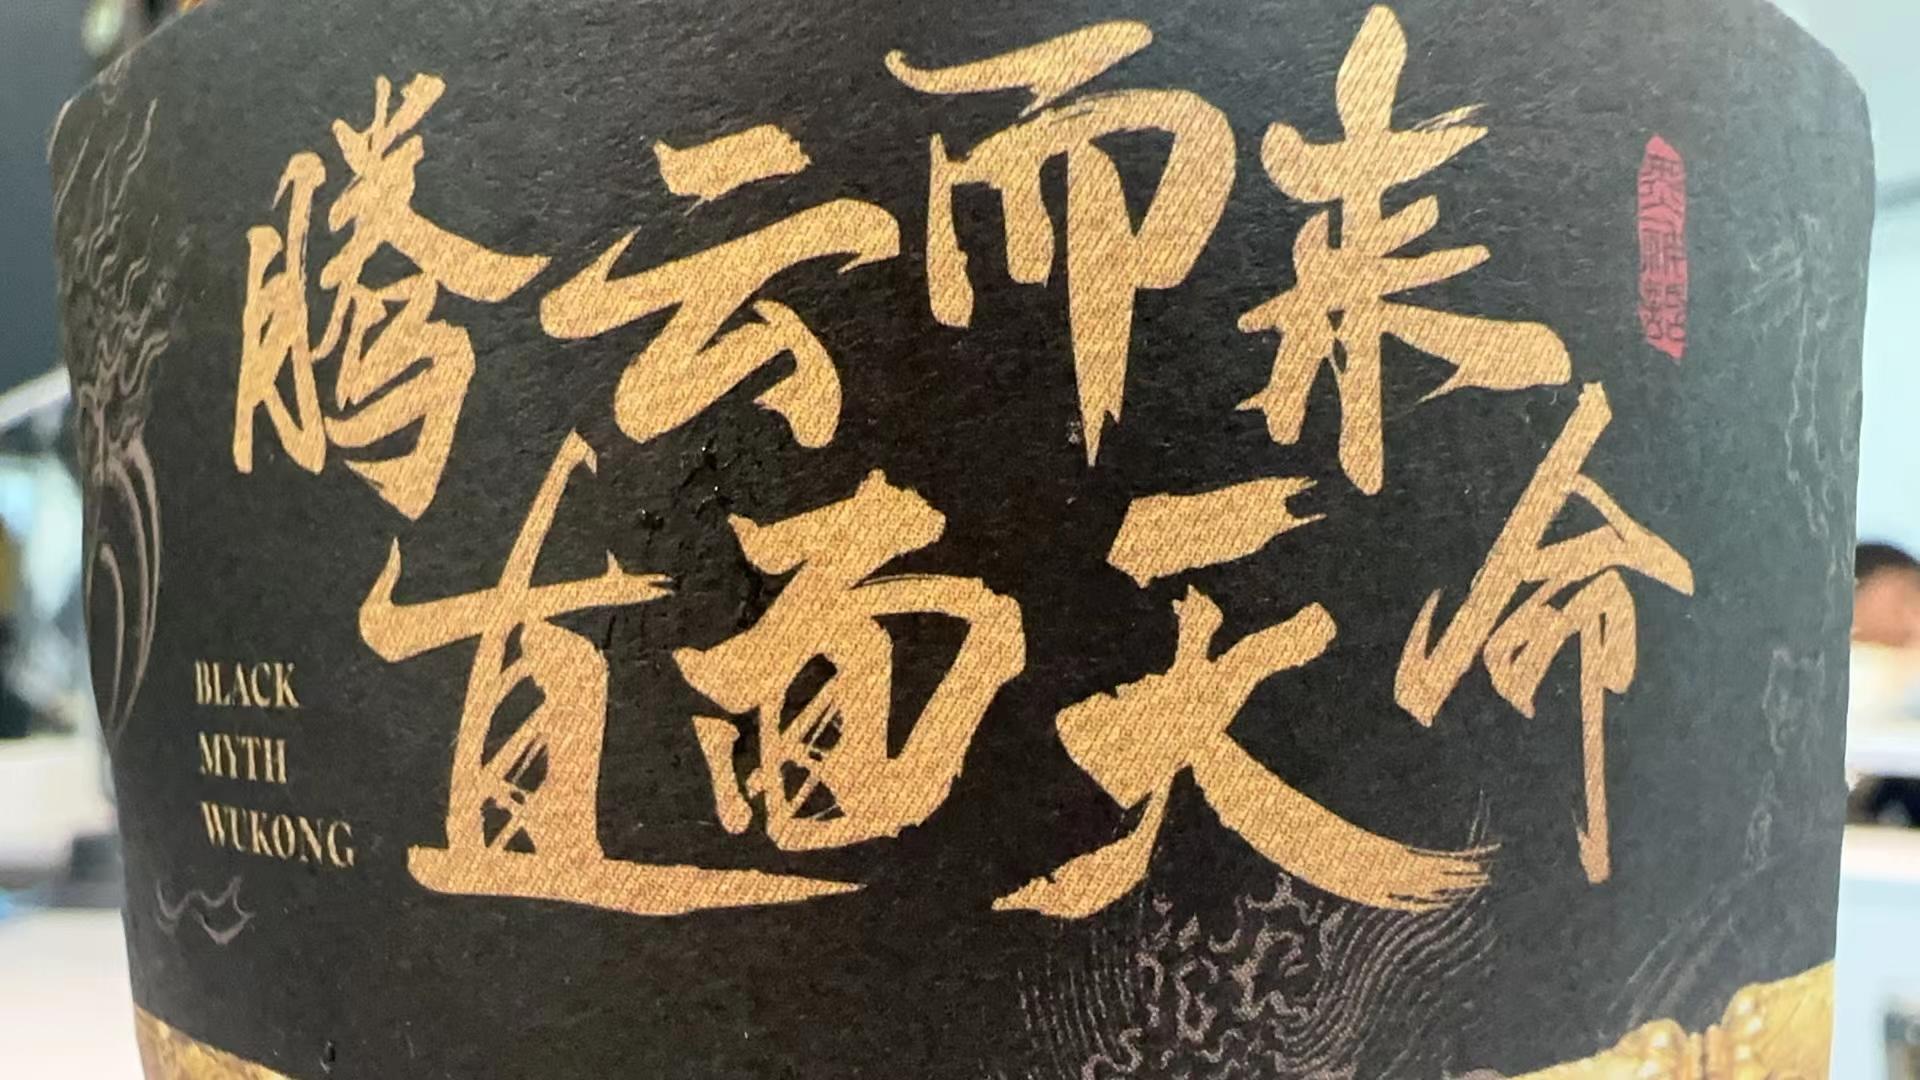 腾云而来
直面天命
BLACK
MYTH
WUKONG